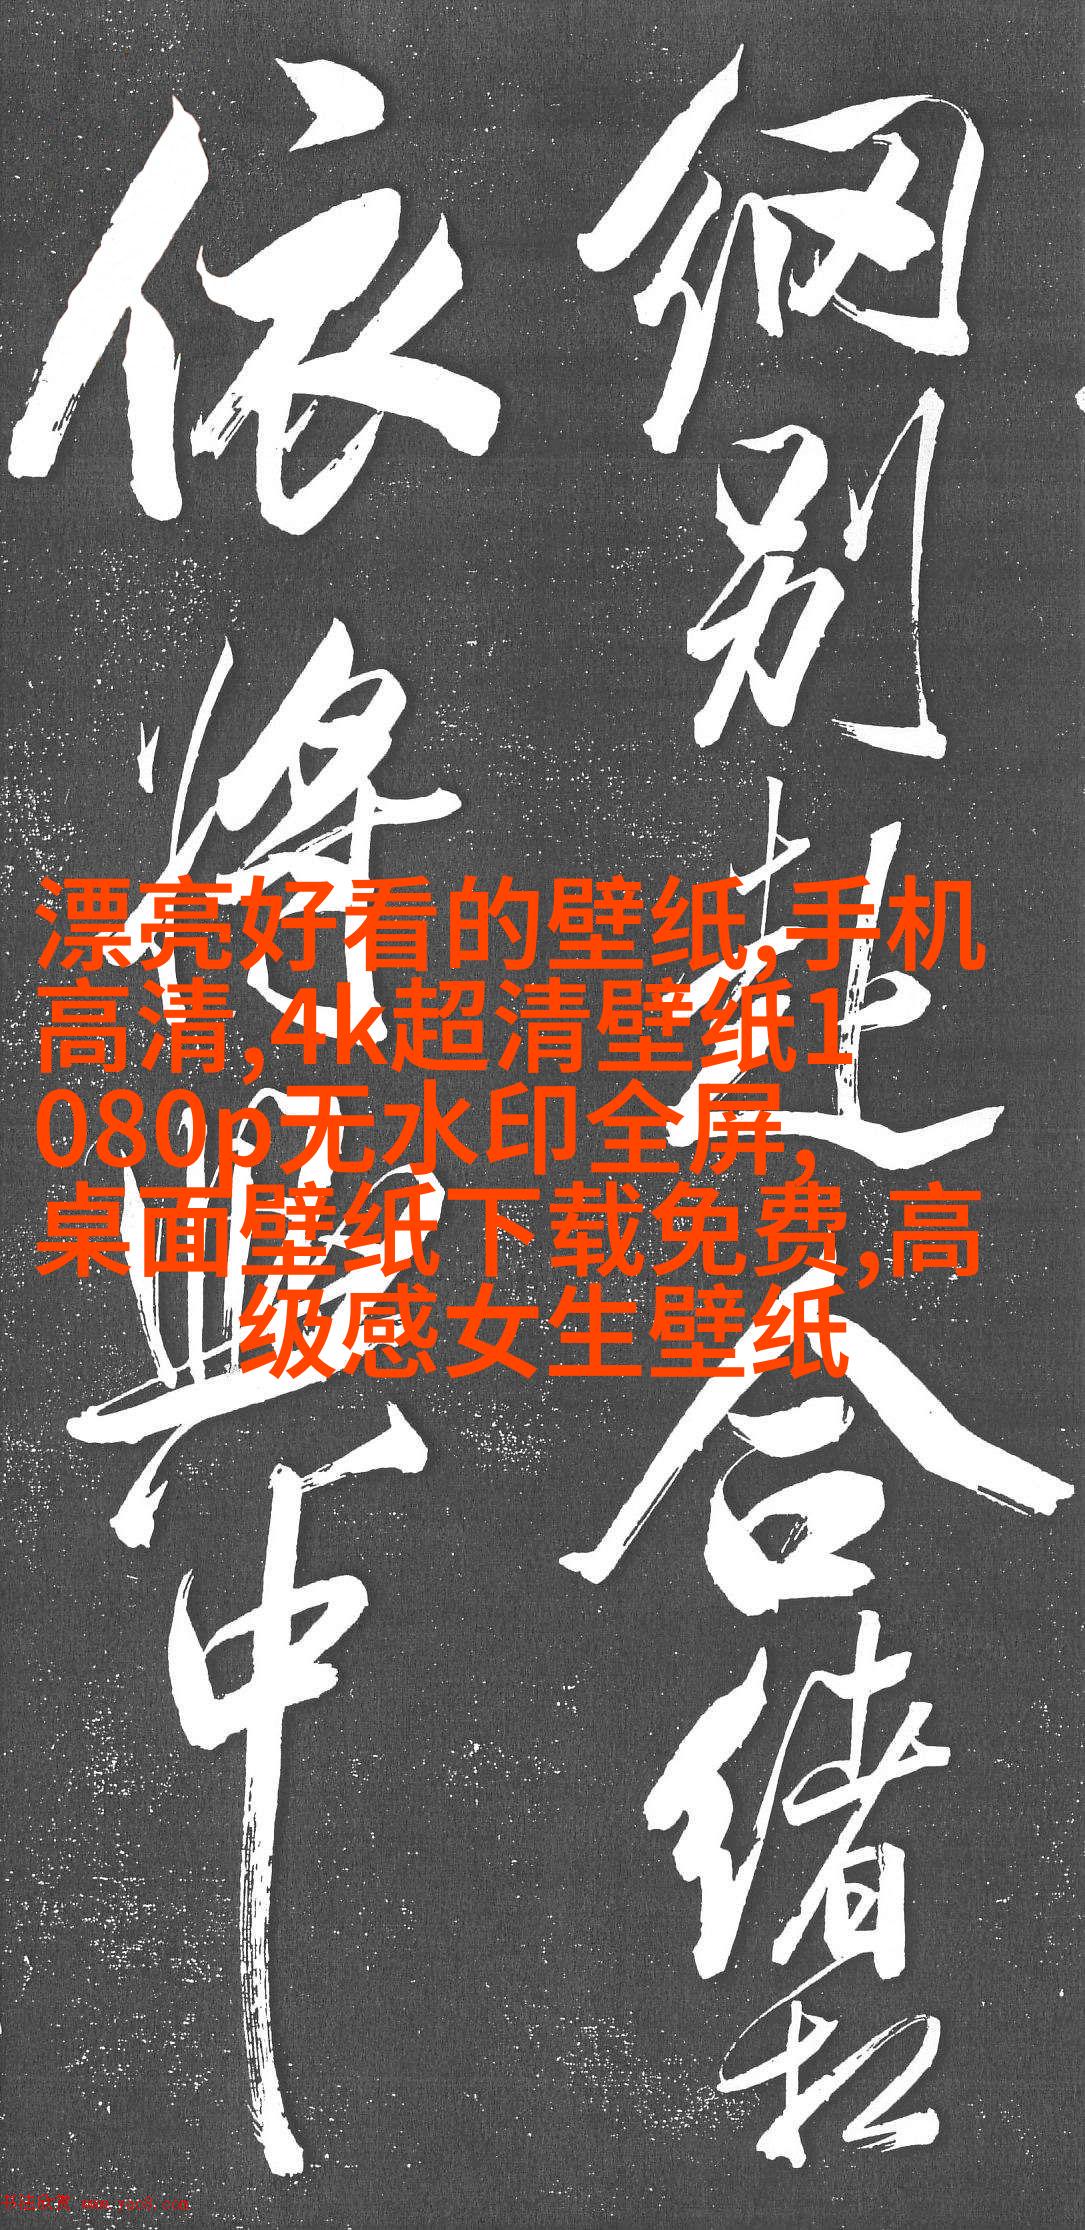 别合緒
依將中
漂亮好看的壁纸,手机
高清,4k超清壁纸1
080p无水印全屏,
桌面壁纸下载免费,高
级感女生壁纸
书法欣赏 www.yac8.com